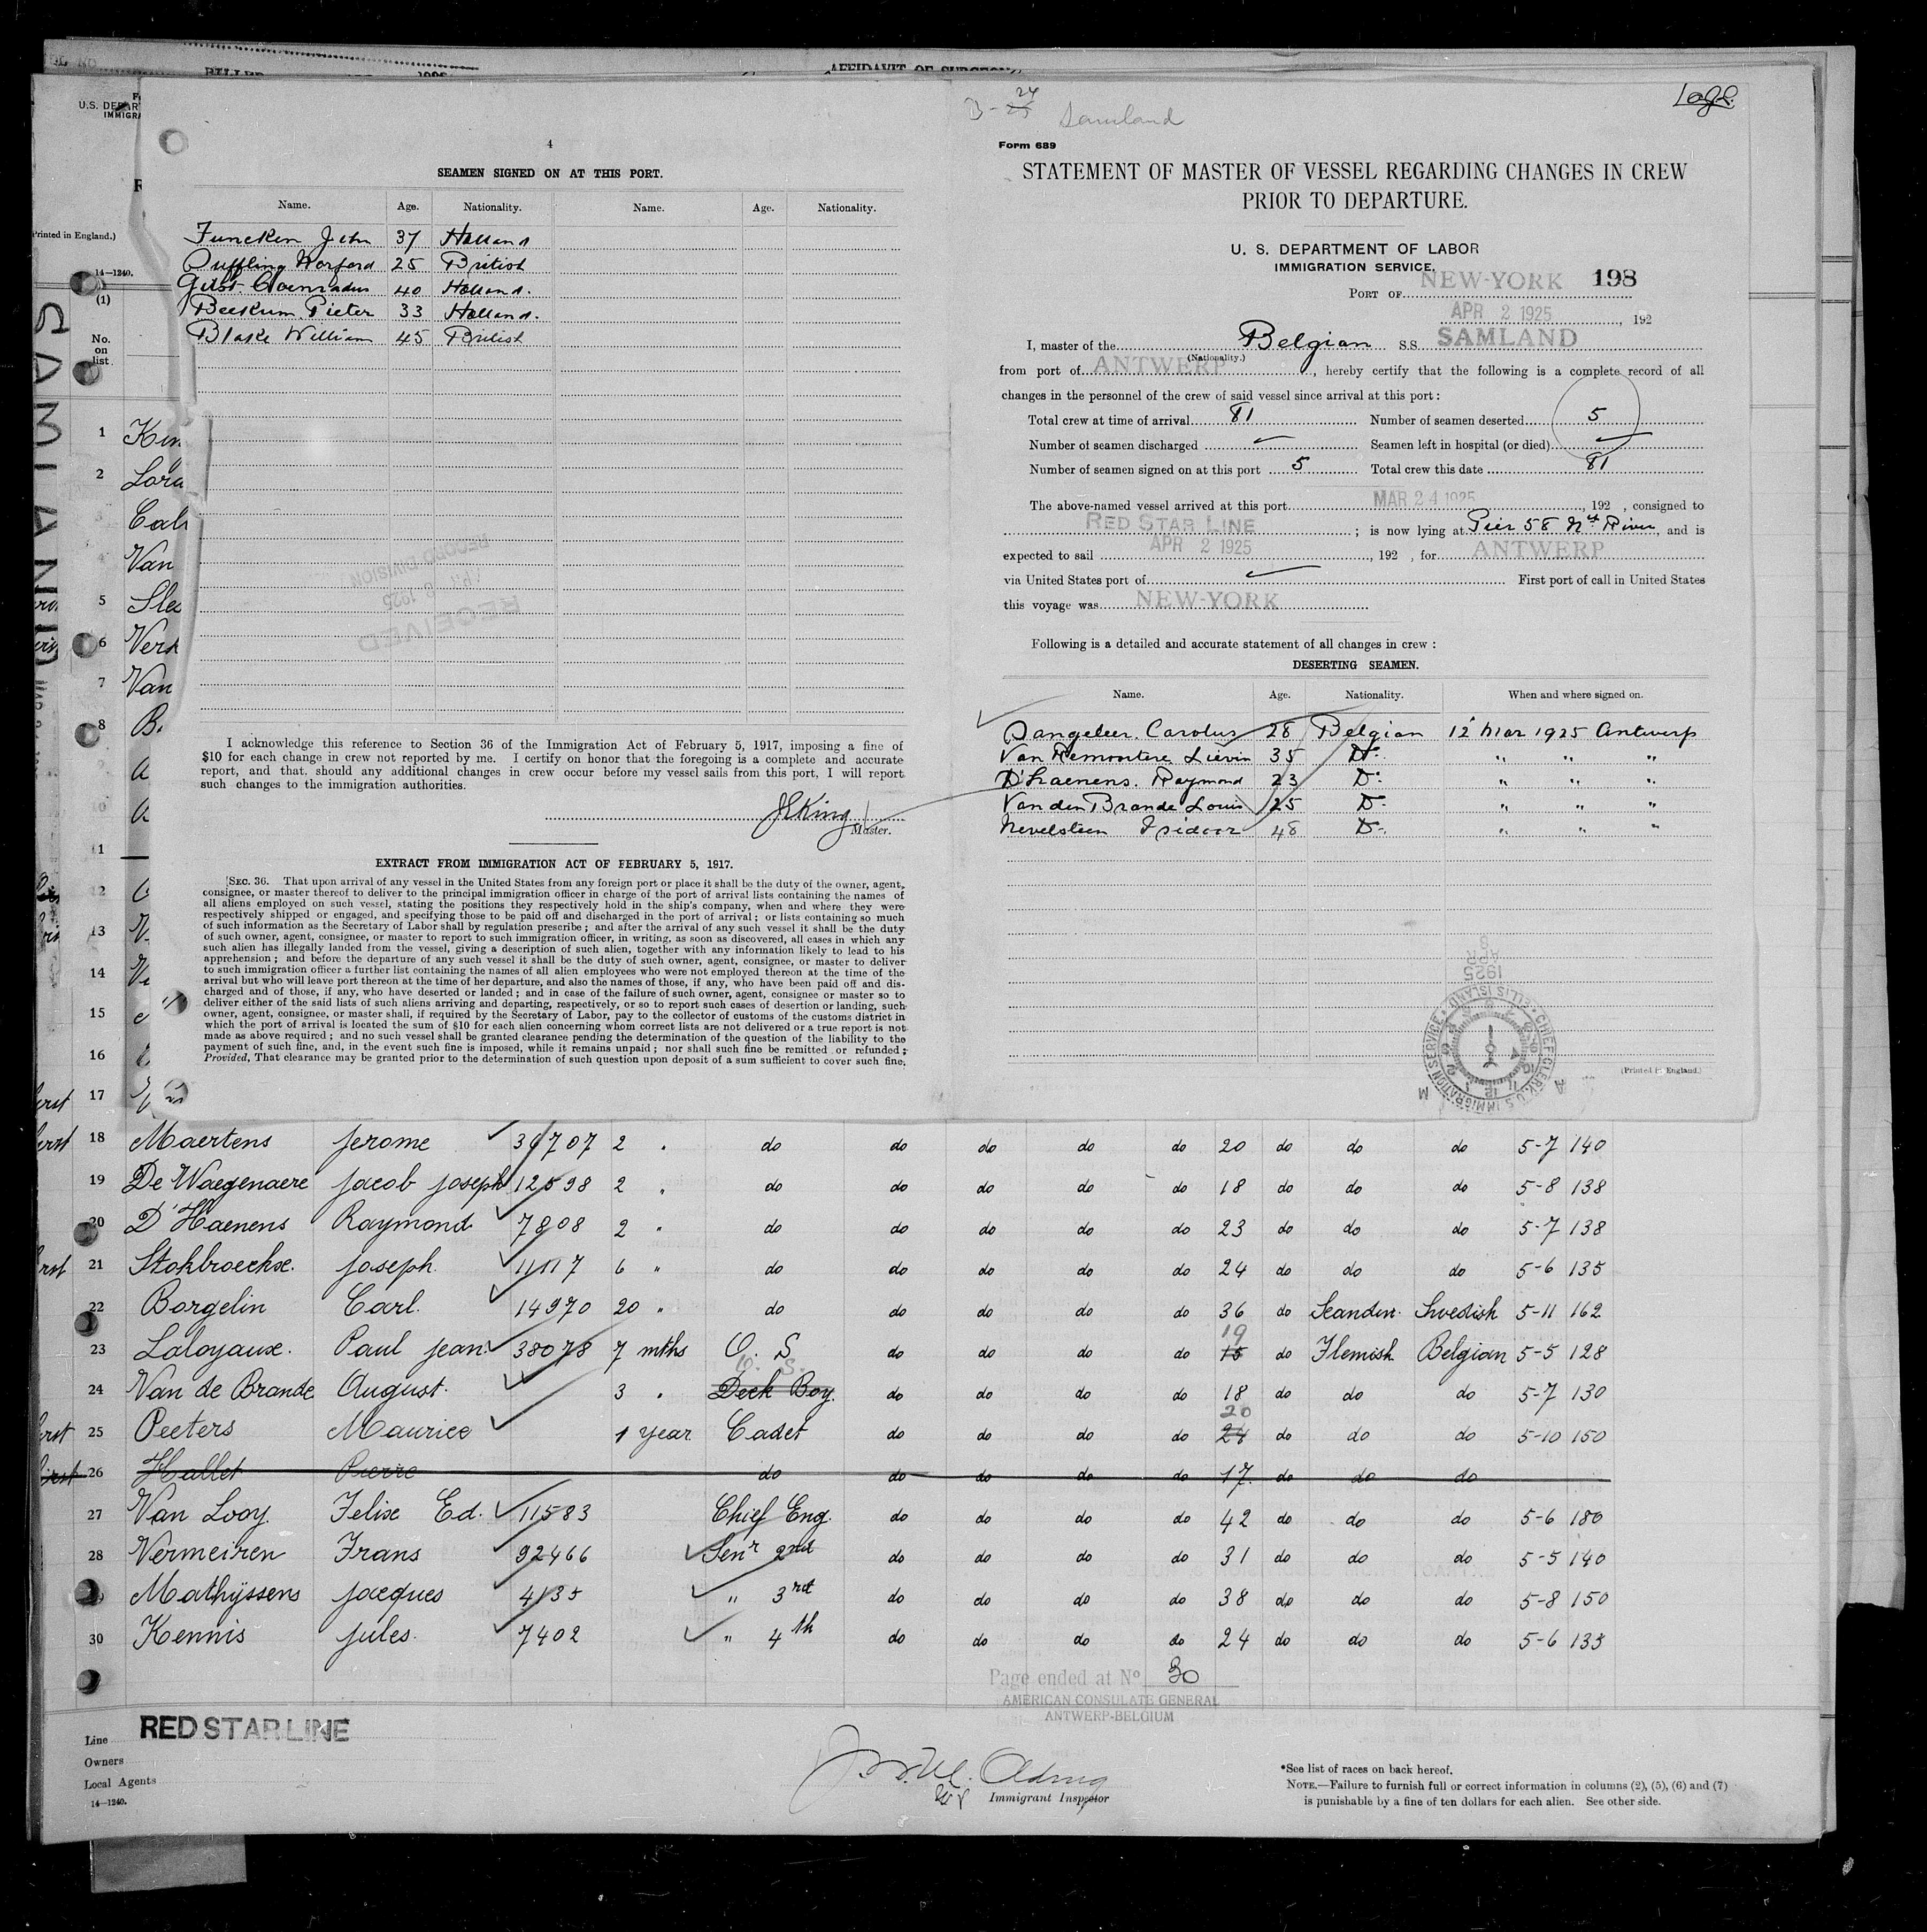 BILLED
AFFIDAVIT OF SURGEON
U.S. DEPAR
IMMIGRA
(Printed in England.)
14—1240.
(1)
No.
on
list
SAMLAND
4
SEAMEN SIGNED ON AT THIS PORT.
Name. Age. Nationality. Name. Age. Nationality.
Funcken John 37 Holland
Puffling Horford 25 British
Gilot Coenradus 40 Holland.
Beekum Pieter 33 Holland.
Blake William 45 British
RECORD DIVISION
APR 8 1925
RECEIVED
I acknowledge this reference to Section 36 of the Immigration Act of February 5, 1917, imposing a fine of
$10 for each change in crew not reported by me. I certify on honor that the foregoing is a complete and accurate
report, and that, should any additional changes in crew occur before my vessel sails from this port, I will report
such changes to the immigration authorities.
JKing
Master.
EXTRACT FROM IMMIGRATION ACT OF FEBRUARY 5, 1917.
SEC. 36. That upon arrival of any vessel in the United States from any foreign port or place it shall be the duty of the owner, agent,
consignee, or master thereof to deliver to the principal immigration officer in charge of the port of arrival lists containing the names of
all aliens employed on such vessel, stating the positions they respectively hold in the ship's company, when and where they were
respectively shipped or engaged, and specifying those to be paid off and discharged in the port of arrival; or lists containing so much
of such information as the Secretary of Labor shall by regulation prescribe; and after the arrival of any such vessel it shall be the duty
of such owner, agent, consignee, or master to report to such immigration officer, in writing, as soon as discovered, all cases in which any
such alien has illegally landed from the vessel, giving a description of such alien, together with any information likely to lead to his
apprehension; and before the departure of any such vessel it shall be the duty of such owner, agent, consignee, or master to deliver
to such immigration officer a further list containing the names of all alien employees who were not employed thereon at the time of the
arrival but who will leave port thereon at the time of her departure, and also the names of those, if any, who have been paid off and dis-
charged and of those, if any, who have deserted or landed; and in case of the failure of such owner, agent, consignee or master so to
deliver either of the said lists of such aliens arriving and departing, respectively, or so to report such cases of desertion or landing, such
owner, agent, consignee, or master shall, if required by the Secretary of Labor, pay to the collector of customs of the customs district in
which the port of arrival is located the sum of $10 for each alien concerning whom correct lists are not delivered or a true report is not
made as above required; and no such vessel shall be granted clearance pending the determination of the question of the liability to the
payment of such fine, and, in the event such fine is imposed, while it remains unpaid; nor shall such fine be remitted or refunded;
Provided, That clearance may be granted prior to the determination of such question upon deposit of a sum sufficient to cover such fine.
3-24 Samland
Form 689
STATEMENT OF MASTER OF VESSEL REGARDING CHANGES IN CREW
PRIOR TO DEPARTURE.
U. S. DEPARTMENT OF LABOR
IMMIGRATION SERVICE.
PORT OF NEW-YORK 198
APR 2 1925, 192
I, master of the Belgian S.S. SAMLAND
(Nationality.)
from port of ANTWERP, hereby certify that the following is a complete record of all
changes in the personnel of the crew of said vessel since arrival at this port:
Total crew at time of arrival 81 Number of seamen deserted 5
Number of seamen discharged Seamen left in hospital (or died)
Number of seamen signed on at this port 5 Total crew this date 81
The above-named vessel arrived at this port MAR 24 1925, 192 , consigned to
RED STAR LINE; is now lying at Pier 58 Nth River, and is
expected to sail APR 2 1925, 192 , for ANTWERP
via United States port of First port of call in United States
this voyage was NEW-YORK
Following is a detailed and accurate statement of all changes in crew:
DESERTING SEAMEN.
Name. Age. Nationality. When and where signed on.
Dangeleer. Carolus 28 Belgian 12 Mar 1925 Antwerp
Van Remoortere Lievin 35 Do. " " "
D'haenens. Raymond 23 Do " " "
Van den Brande Louis 25 Do " " "
Nevelsteen Isidoor 48 Do. " " "
1925
APR
8
CHIEF CLERK, U.S. IMMIGRATION SERVICE ELLIS ISLAND
A M
(Printed in England.)
1 Ken
2 Lora
Calv
Van
5 Slee
6 Verh
7 Van
8 B.
11
12
13 V
14 Ve
15
16
17
18 Maertens Jerome 36707 2 " do do do do do 20 do do do 5-7 140
19 De Waegenaere Jacob Joseph 12598 2 " do do do do do 18 do do do 5-8 138
20 D'Haenens Raymond 7808 2 " do do do do do 23 do do do 5-7 138
21 Stokbroeckx. Joseph. 11117 6 " do do do do do 24 do do do 5-6 135
22 Borgelin Carl. 14970 20 " do do do do do 36 do Scandin. Swedish 5-11 162
23 Laloyaux. Paul Jean. 38078 7 mths O. S do do do do 19 15 do Flemish Belgian 5-5 128
24 Van de Brande August. 3 " O. S. Deck Boy. do do do do 18 do do do 5-7 130
25 Peeters Maurice 1 year Cadet do do do do 20 24 do do do 5-10 150
26 Hallet Pierre do do do do do 17. do do do
27 Van Looy. Felix Ed. 11583 Chief Eng. do do do do 42 do do do 5-6 180
28 Vermeiren Frans 92466 Senr 2nd do do do do 31 do do do 5-5 140
Mathijssens Jacques 4135 " 3rd do do do do 38 do do do 5-8 150
30 Kennis Jules. 7402 " 4th do do do do 24 do do do 5-6 135
Page ended at No 30
AMERICAN CONSULATE GENERAL
ANTWERP-BELGIUM
Line RED STAR LINE
Owners
Local Agents
14—1240.
Immigrant Inspector
*See list of races on back hereof.
NOTE.—Failure to furnish full or correct information in columns (2), (5), (6) and (7)
is punishable by a fine of ten dollars for each alien. See other side.